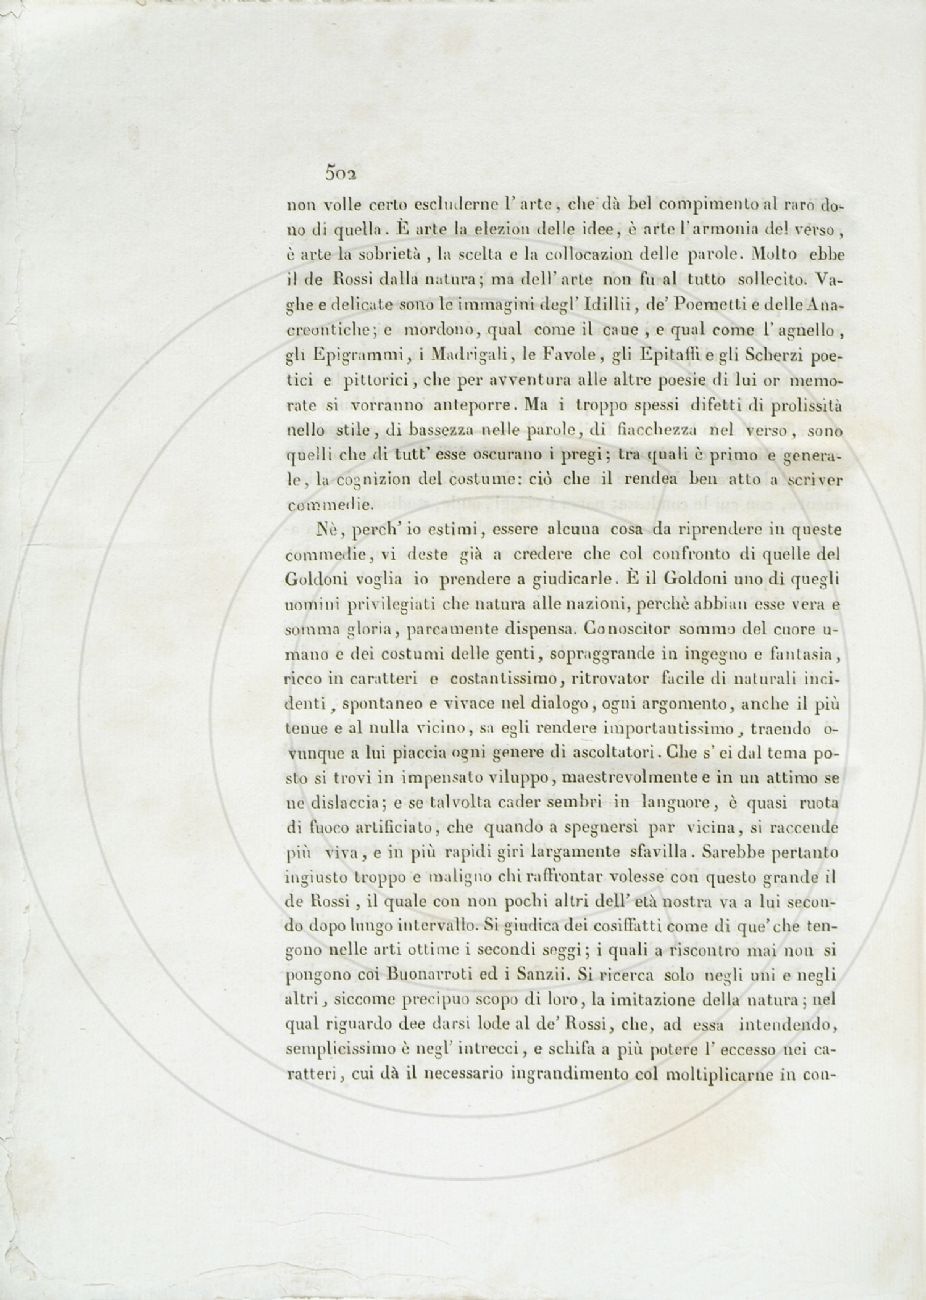 502
non volle certo escluderne l' arte, che dà bel compimento al raro do-
no di quella. È arte la elezion delle idee, è arte l'armonia del verso,
è arte la sobrietà, la scelta e la collocazion delle parole. Molto ebbe
il de Rossi dalla natura; ma dell' arte non fu al tutto sollecito. Va-
ghe e delicate sono le immagini degl' Idillii, de' Poemetti e delle Ana-
creontiche; e mordono, qual come il cane, e qual come l' agnello,
gli Epigrammi, i Madrigali, le Favole, gli Epitaffi e gli Scherzi poe-
tici e pittorici, che per avventura alle altre poesie di lui or memo-
rate si vorranno anteporre. Ma i troppo spessi difetti di prolissità
nello stile, di bassezza nelle parole, di fiacchezza nel verso, sono
quelli che di tutt' esse oscurano i pregi; tra quali è primo e genera-
le, la cognizion del costume: ciò che il rendea ben atto a scriver
commedie.
Nè, perch' io estimi, essere alcuna cosa da riprendere in queste
commedie, vi deste già a credere che col confronto di quelle del
Goldoni voglia io prendere a giudicarle. È il Goldoni uno di quegli
uomini privilegiati che natura alle nazioni, perchè abbian esse vera e
somma gloria, parcamente dispensa. Conoscitor sommo del cuore u-
mano e dei costumi delle genti, sopraggrande in ingegno e fantasia,
ricco in caratteri e costantissimo, ritrovator facile di naturali inci-
denti, spontaneo e vivace nel dialogo, ogni argomento, anche il più
tenue e al nulla vicino, sa egli rendere importantissimo, traendo o-
vunque a lui piaccia ogni genere di ascoltatori. Che s' ei dal tema po-
sto si trovi in impensato viluppo, maestrevolmente e in un attimo se
ne dislaccia; e se talvolta cader sembri in languore, è quasi ruota
di fuoco artificiato, che quando a spegnersi par vicina, si raccende
più viva, e in più rapidi giri largamente sfavilla. Sarebbe pertanto
ingiusto troppo e maligno chi raffrontar volesse con questo grande il
de Rossi, il quale con non pochi altri dell' età nostra va a lui secon-
do dopo lungo intervallo. Si giudica dei cosiffatti come di que' che ten-
gono nelle arti ottime i secondi seggi; i quali a riscontro mai non si
pongono coi Buonarroti ed i Sanzii. Si ricerca solo negli uni e negli
altri, siccome precipuo scopo di loro, la imitazione della natura; nel
qual riguardo dee darsi lode al de' Rossi, che, ad essa intendendo,
semplicissimo è negl' intrecci, e schifa a più potere l' eccesso nei ca-
ratteri, cui dà il necessario ingrandimento col moltiplicarne in con-